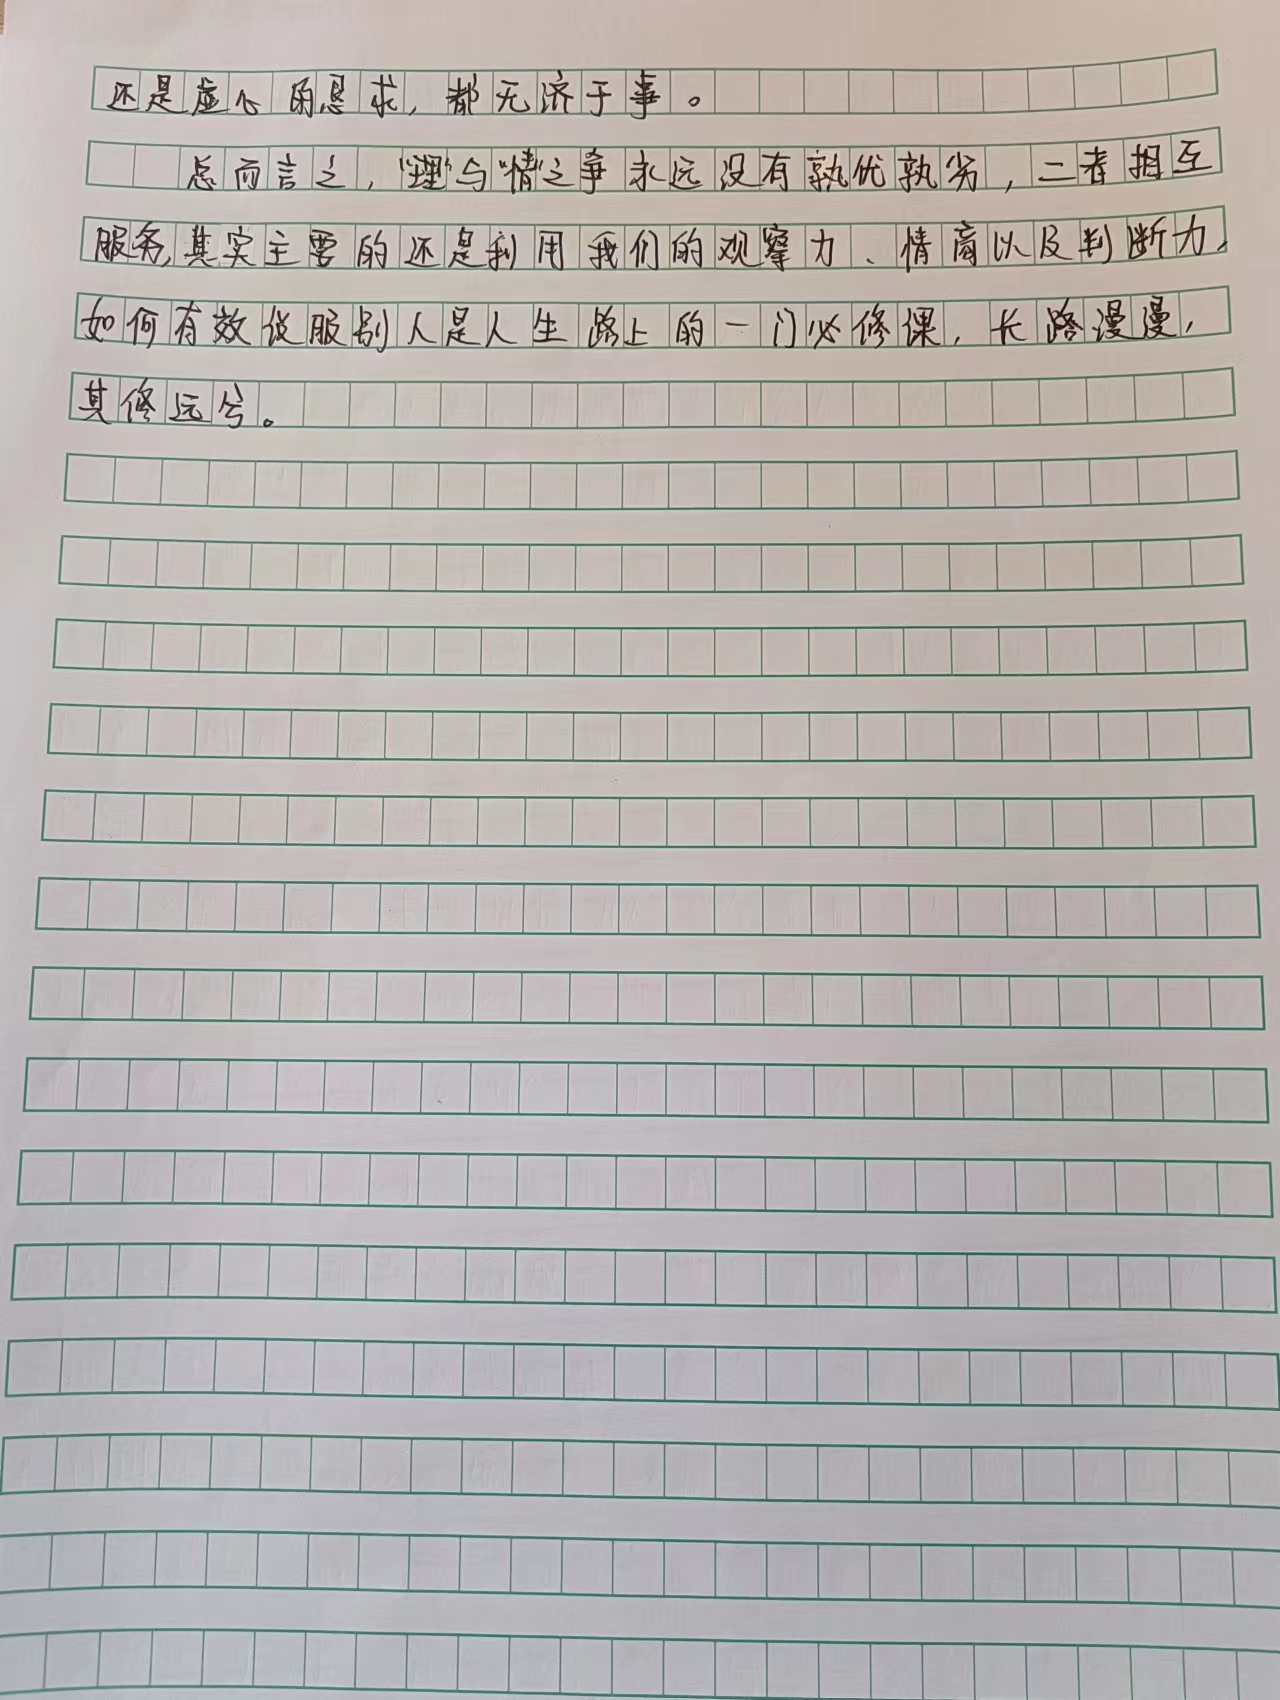 还是虚心的恳求，都无济于事。
总而言之，“理”与“情”之争永远没有孰优孰劣，二者相互
服务，其实主要的还是利用我们的观察力、情商以及判断力，
如何有效说服别人是人生路上的一门必修课，长路漫漫，
其修远兮。